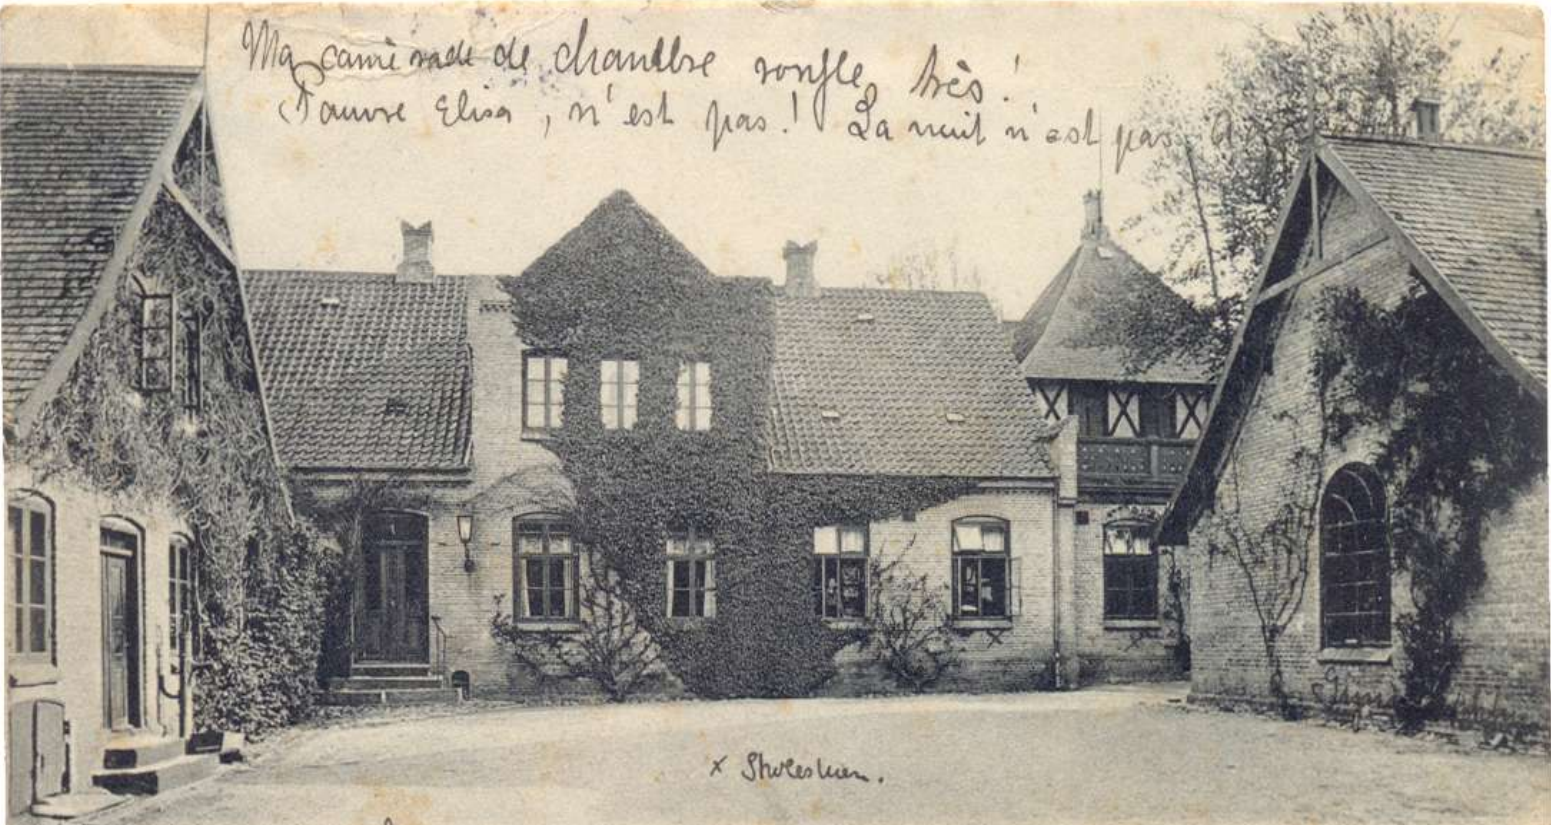 Ma camèrade de chambre ronfle, très!
Pauvre Elisa, n'est pas! La nuit n'est pas
x Skolestuen.